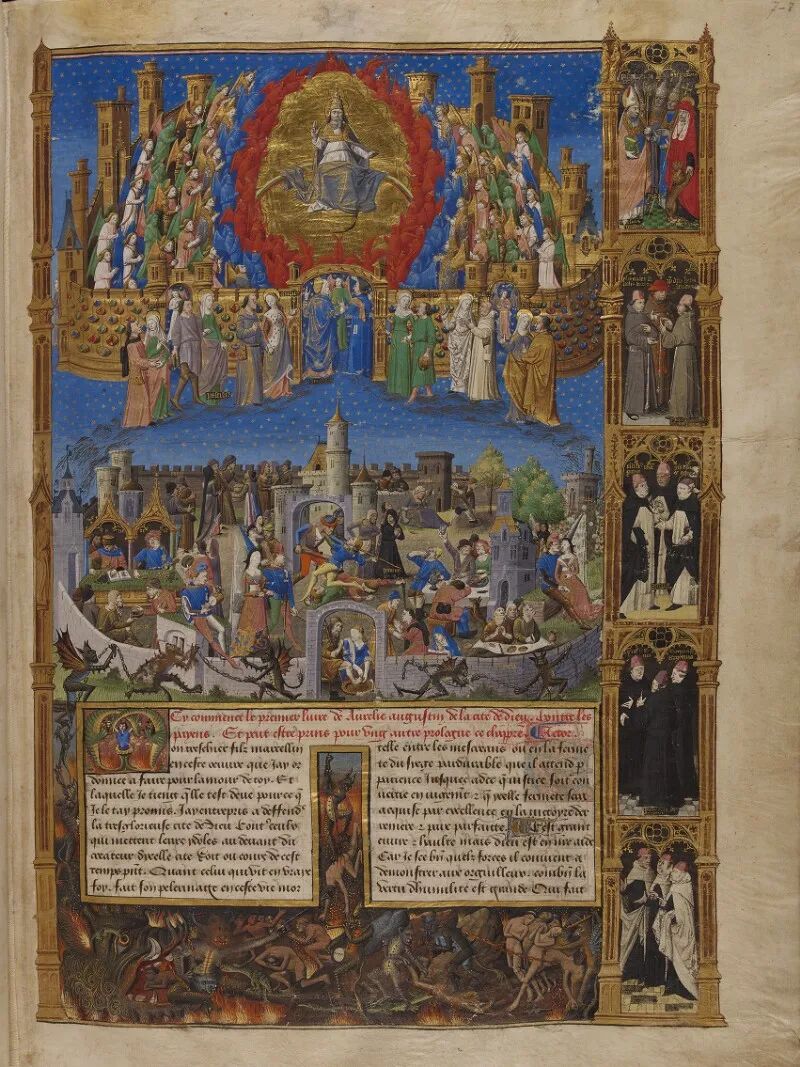 Cy commence le premier liure de Aurelle augustin de la cite de dieu. Contre les
payens. Et peut estre prins pour ung autre prologue ce chappre. Actor.
on treschier filz marcellin
en ceste oeuure que Jay or
donnee a faire pour lamour de toy. Et
laquelle Je tieng qlle test deue pour ce q
Je le tay promis. Jay entrepris a deffend
la tresglorieuse cite de Dieu Cont ceulx
qui mettent leurs ydoles au deuant du
createur dycelle cite Soit ou cours de cest
temps pnt. Quant celui qui vit en vraye
foy. fait son pelerinatge en ceste vie mor
telle entre les mescreans ou en la ferme
te du siege pardurable que il attend p
patience Jusques adce q iustice soit con
uertie en iugemt & q ycelle fermete sera
acquise par excellence en la victoyre der
reniere & paix parfaitte. Cest grant
euure & haulte mais dieu est en nre aide
Car Je scey bn quelz forces il conuient a
demonstrer aux orguilleux. combn la
vertu dhumilite est grande Qui fait